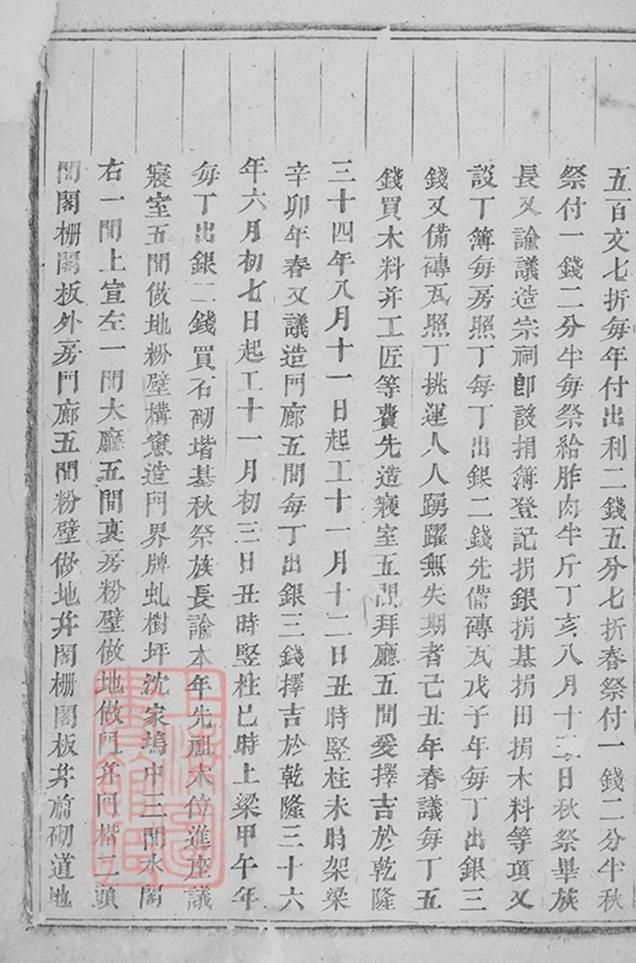 五百文七折每年付出利二錢五分七折春祭付一錢二分半秋
祭付一錢二分半每祭給胙肉半斤丁亥八月十三日秋祭畢族
長又諭議造宗祠卽設捐簿登記捐銀捐基捐田捐木料等項又
設丁簿每房照丁每丁出銀二錢先備磚瓦戊子年每丁出銀三
錢又備磚瓦照丁挑運人人踴躍無失期者己丑年春議每丁五
錢買木料幷工匠等費先造寢室五間拜廳五間爰擇吉於乾隆
三十四年八月十一日起工十一月十二日丑時竪柱未時架梁
辛卯年春又議造門廊五間每丁出銀三錢擇吉於乾隆三十六
年六月初七日起工十一月初三日丑時竪柱巳時上梁甲午年
每丁出銀二錢買石砌堦基秋祭族長諭本年先祖木位進座議
寢室五間做地粉壁構窻造門界牌虬樹坪沈家塢中三間水閣
右一間上宣左一間大廳五間裏房粉壁做地做門幷門楷二頭
間閣栅閣板外房門廊五間粉壁做地幷閣栅閣板幷前砌道地